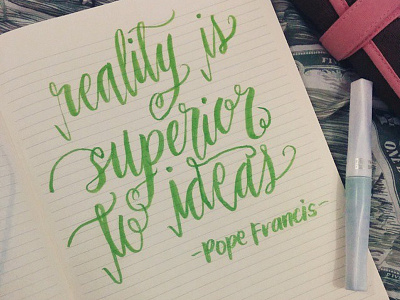 reality is
superior
to ideas
-Pope Francis-